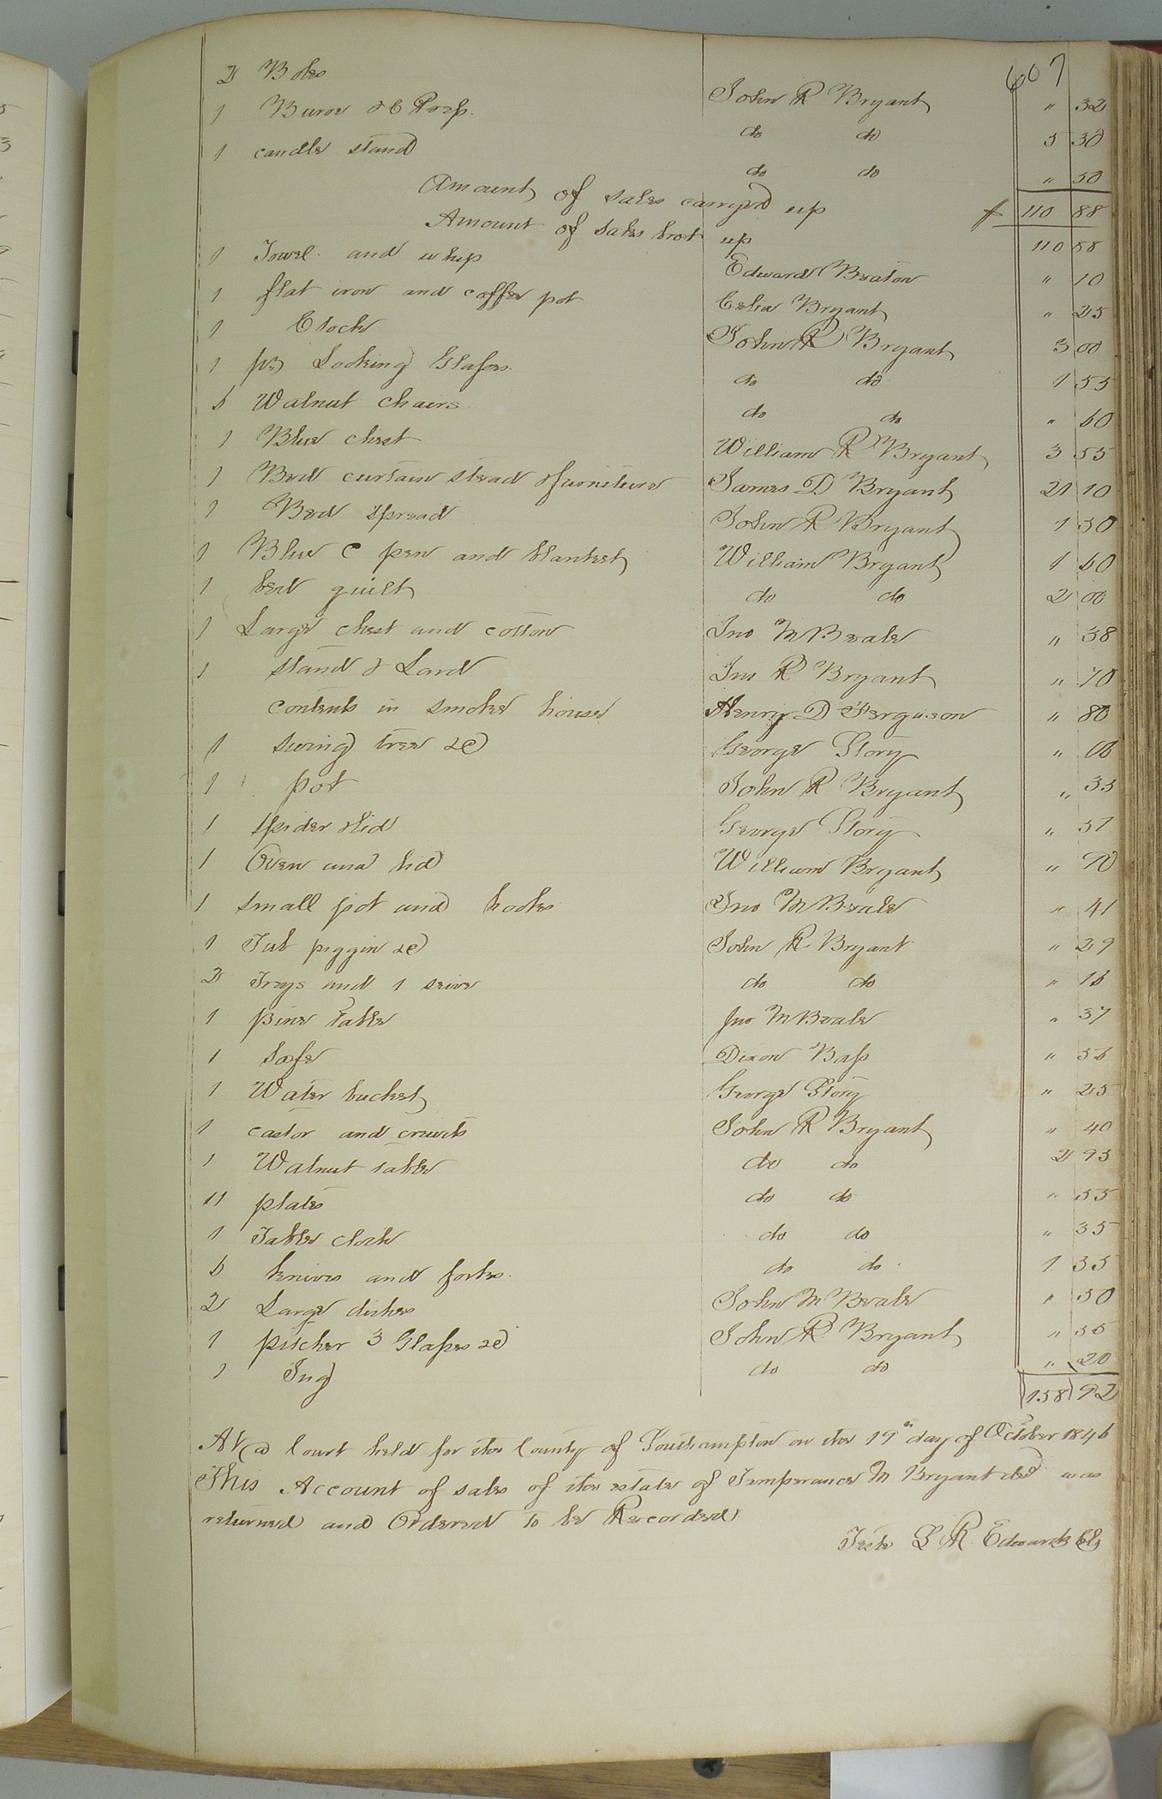 607
2 Boles John R Bryant " 32
1 Buroe & C Prass do do 5 30
1 candle stand do do " 50
Amount of sales carryed up $ 110 88
Amount of sales brot up 110 88
1 Towel and whip Edward Beaton " 10
1 flat iron and coffee pot Celia Bryant " 25
1 Clock John R Bryant 3 00
1 pr Looking Glasses do do 1 55
6 Walnut chairs do do " 60
1 Blue chest William R M Bryant 3 55
1 Bed curtain stead & furniture James D Bryant 21 10
1 Bed spread John R Bryant 1 50
1 Blue C pen and blanket William Bryant 1 60
1 bed quilt do do 2 00
1 Large chest and cotton Jno M Beale " 38
1 stand & Lard Jno R Bryant " 70
contents in smoke house Henry D Ferguson " 80
1 swing tree &c George Story " 06
1 pot John R Bryant " 35
1 spider & lid George Story " 57
1 Oven and lid William Bryant " 90
1 small pot and hooks Jno M Beale " 41
1 Tub piggin &c John R Bryant " 29
2 Trays and 1 seive do do " 16
1 pine Table Jno M Beale " 37
1 Safe Dixon Bass " 56
1 Water bucket George Story " 25
1 castor and cruets John R Bryant " 40
1 Walnut table do do 2 95
11 plates do do " 55
1 Table cloth do do " 35
6 knives and forks do do 1 35
2 Large dishes John M Beale " 50
1 pitcher 3 Glasses &c John R Bryant " 55
1 Jug do do " 20
158 92
At a Court held for the County of Southampton on the 19th day of October 1846
This Account of sales of the estate of Temperance M Bryant decd was
returned and Ordered to be Recorded
Teste L R Edwards Clk